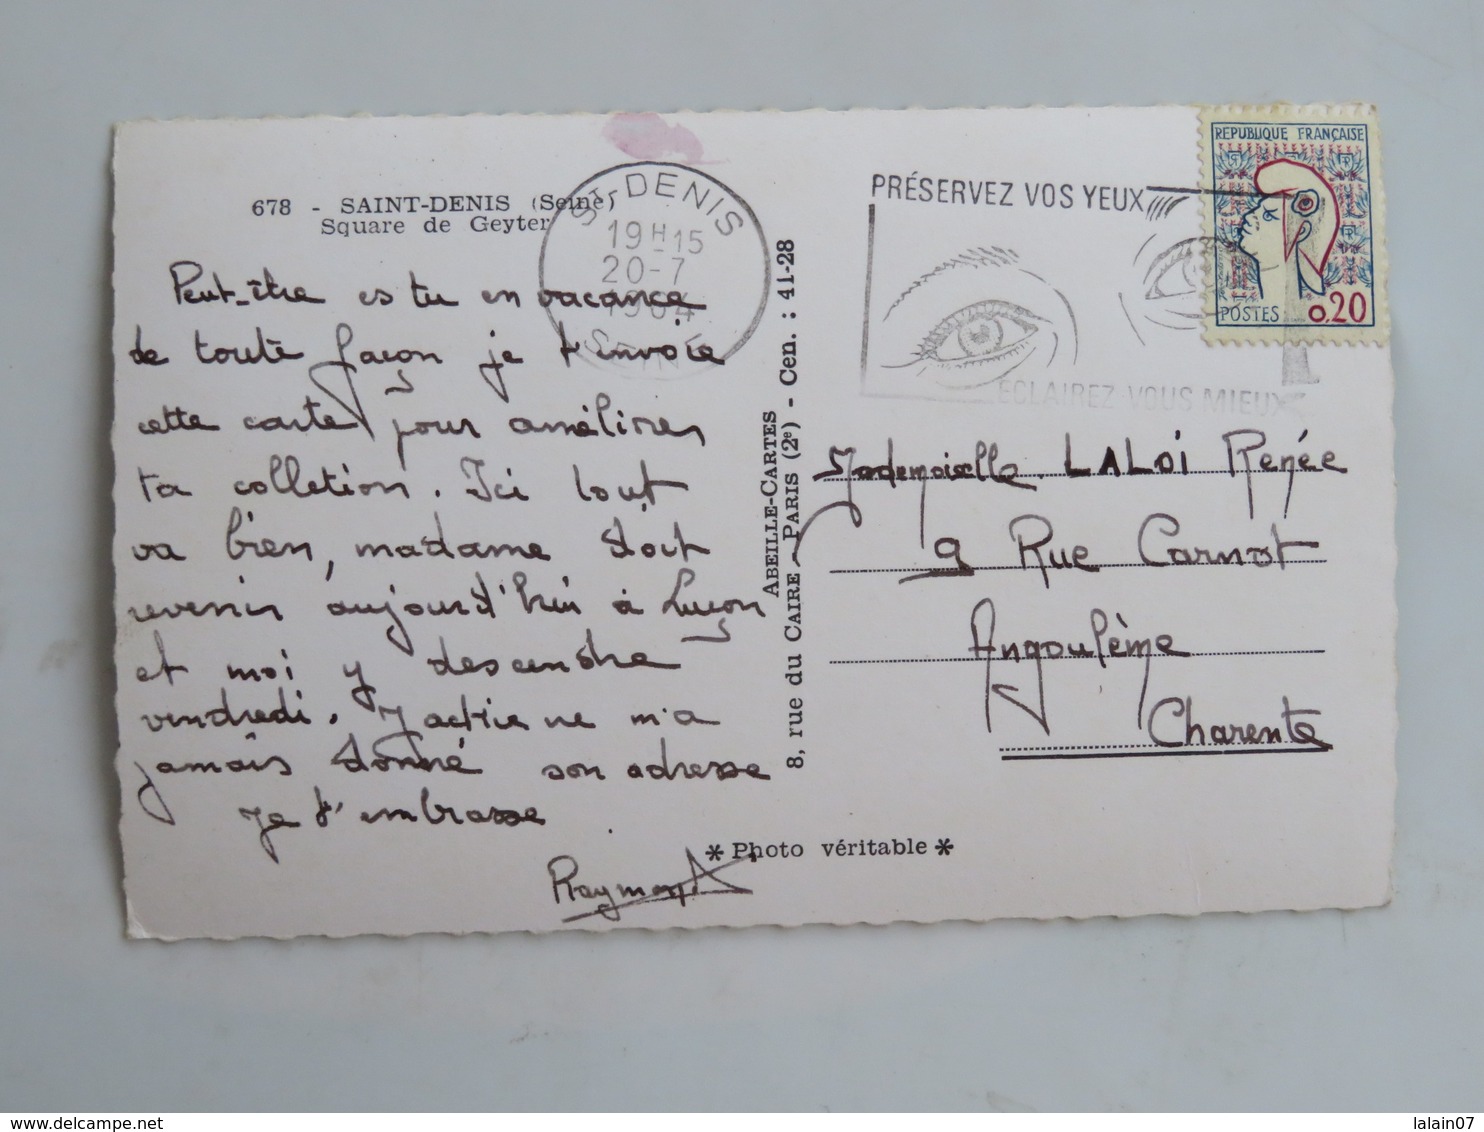 678 - SAINT-DENIS (Seine)
Square de Geyter
Peut-être es tu en vacance
de toute façon je t'envoie
cette carte pour amélirer
ta colletion. Ici tout
va bien, madame doit
revenir aujourd'hui à Luçon
et moi y descendre
vendredi. J actrie ne m'a
jamais donné son adresse
Je t'embrasse
Raymond
ST-DENIS
19H15
20-7
1964
SEINE
ABEILLE-CARTES
8, rue du CAIRE - PARIS (2e) - Cen. : 41-28
* Photo véritable *
PRÉSERVEZ VOS YEUX
ECLAIREZ-VOUS MIEUX
REPUBLIQUE FRANÇAISE
POSTES 0,20
Mademoiselle LALOi Renée
9 Rue Carnot
Angoulème
Charente
lalain07